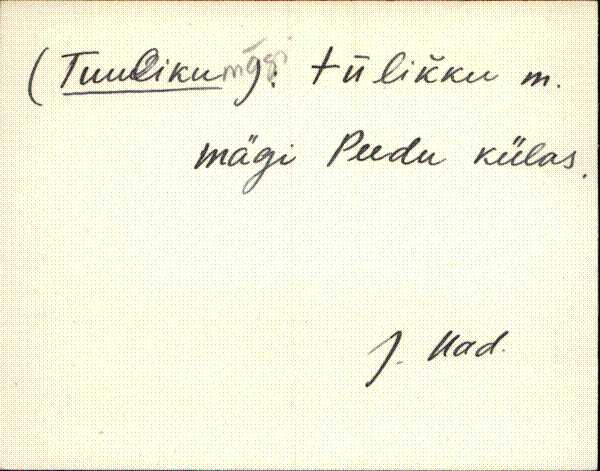 (Tuuliku mägi): tūlik̆ku m.
mägi Peedu külas.
J. Mad.